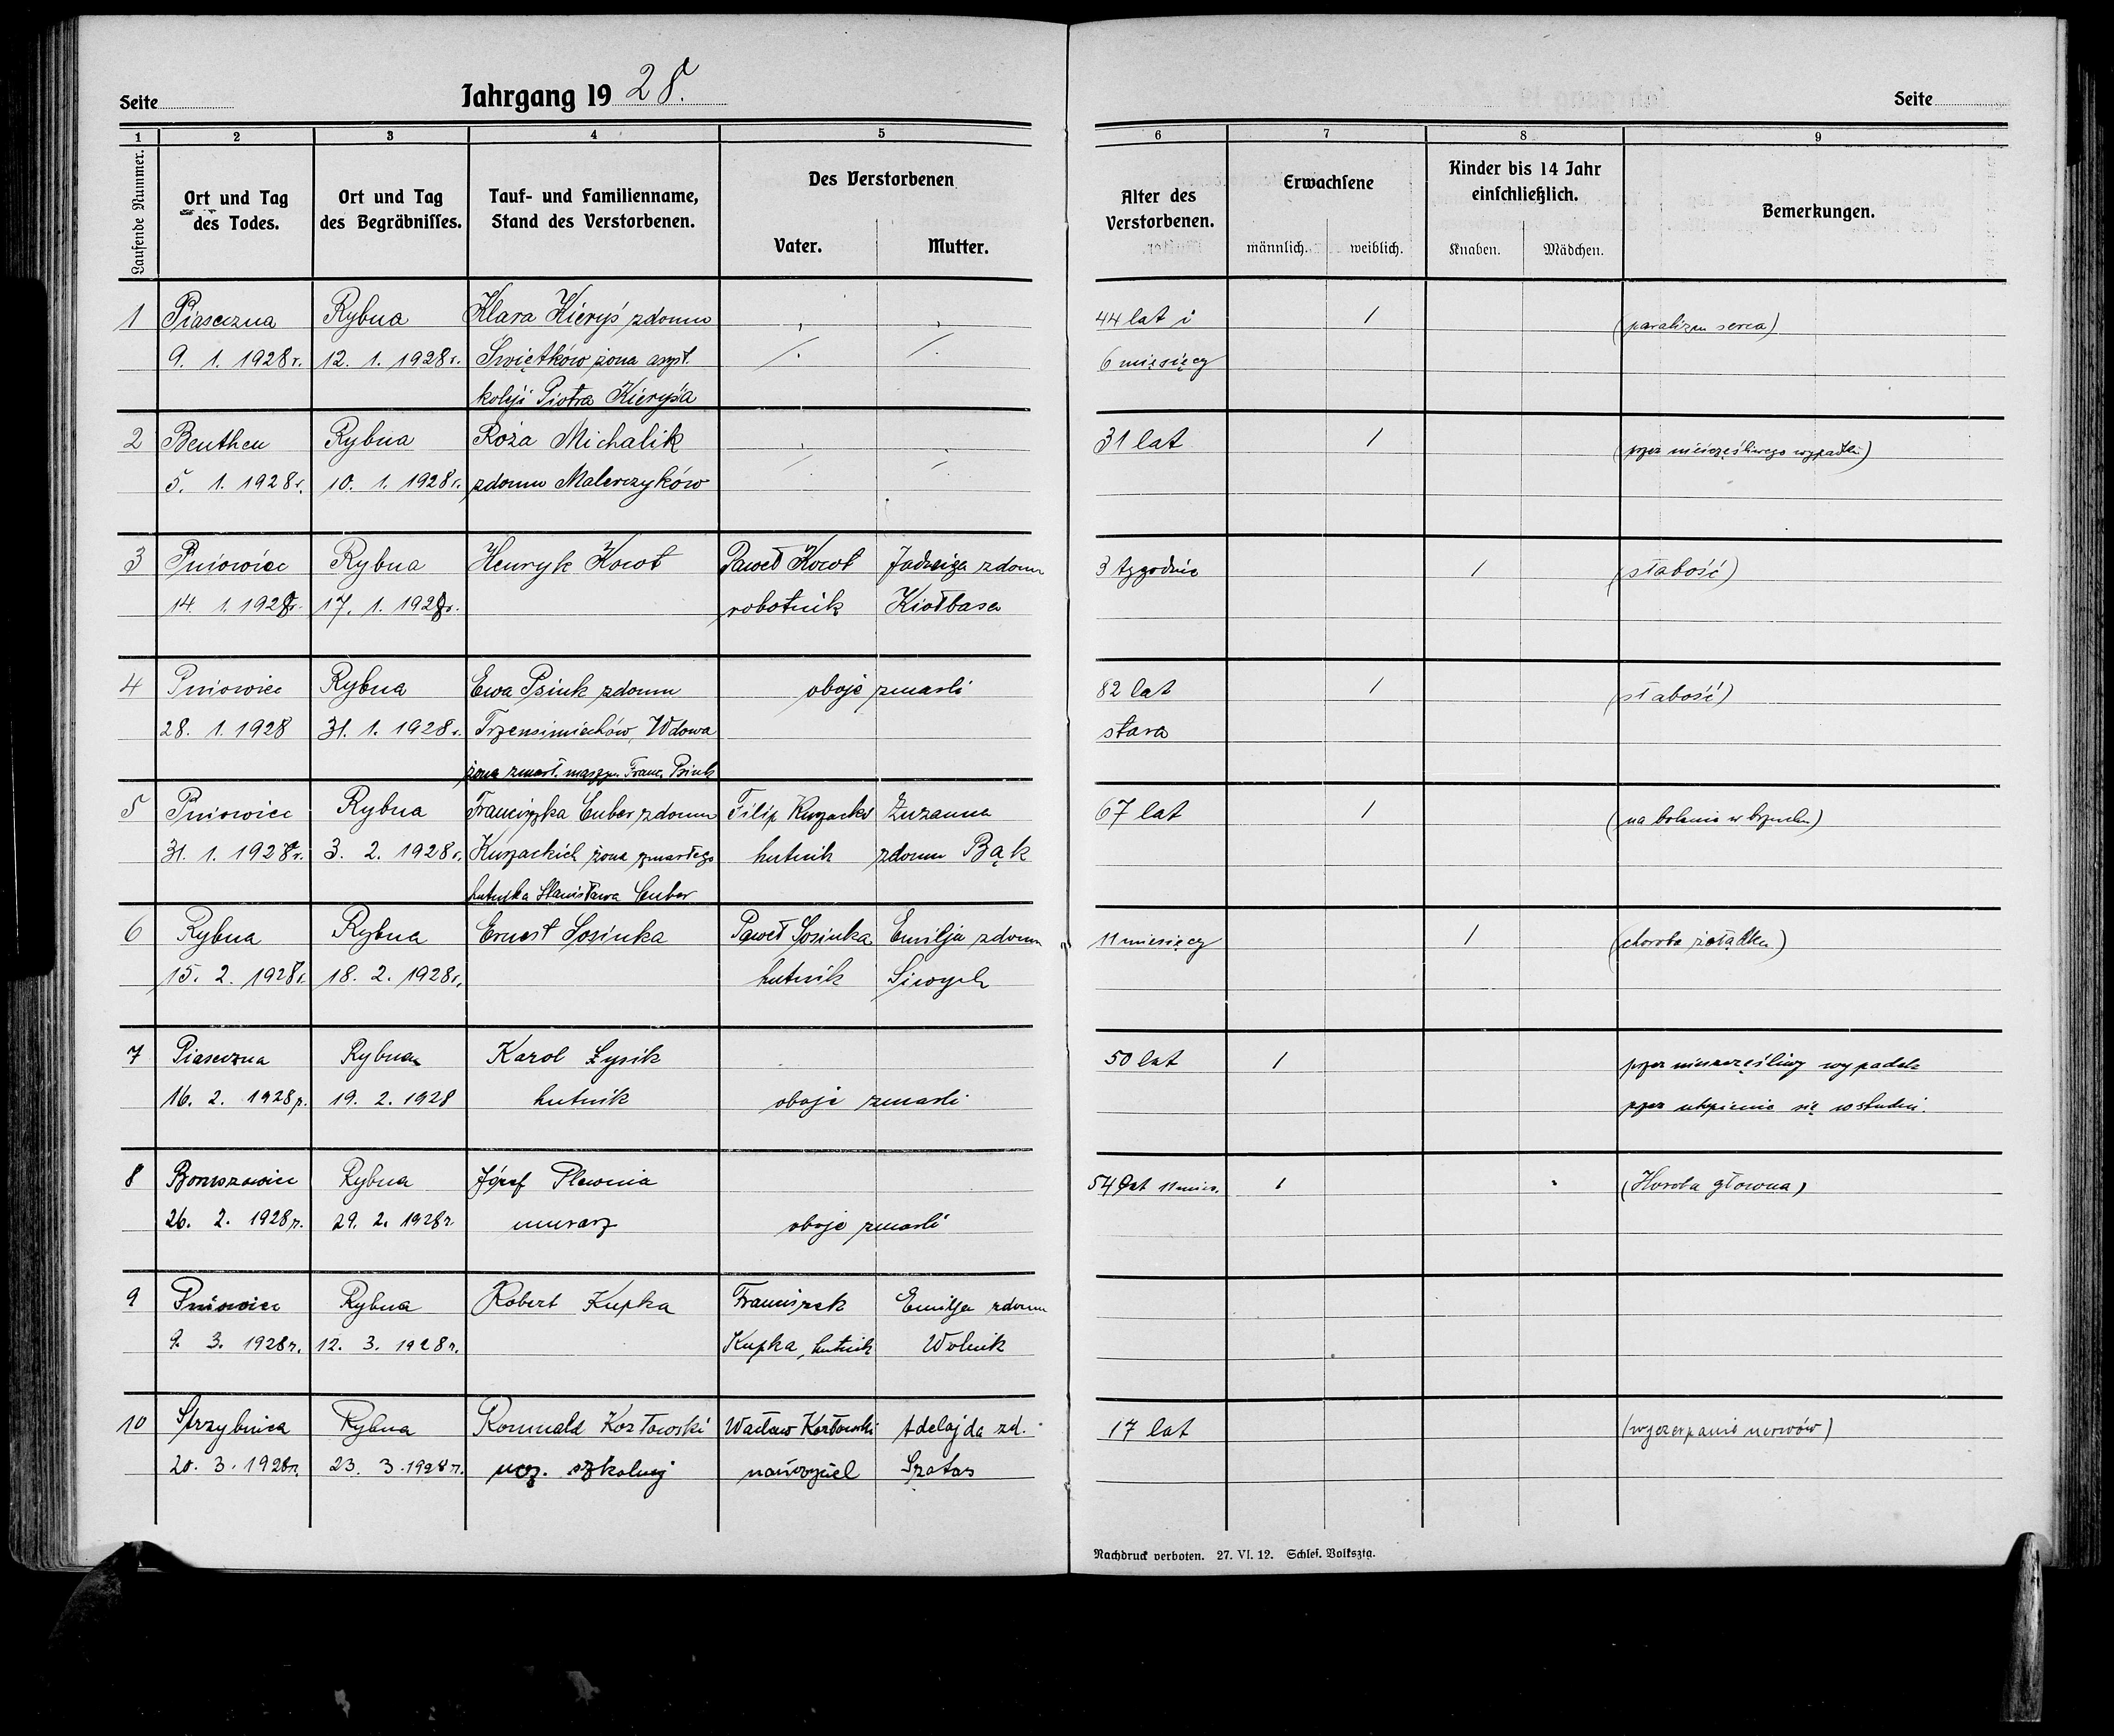 Seite
Jahrgang 19 28.
Seite
1 2 3 4 5 6 7 8 9
Laufende Nummer.
Ort und Tag des Todes.
Ort und Tag des Begräbnisses.
Tauf- und Familienname, Stand des Verstorbenen.
Des Verstorbenen
Vater. Mutter.
Alter des Verstorbenen.
Erwachsene
männlich. weiblich.
Kinder bis 14 Jahr einschließlich.
Knaben. Mädchen.
Bemerkungen.
1 Piaseczna Rybna Klara Kieryś zdomu 44 lat i 1 (paraliżm serca)
9. 1. 1928 r. 12. 1. 1928 r. Świętków żona asyst. 6 miesięcy
koleji Piotra Kierysia
2 Beuthen Rybna Roża Michalik 31 lat 1 (przez nieszczęśliwego wypadku)
5. 1. 1928 r. 10. 1. 1928 r. zdomu Malerczyków
3 Pniowiec Rybna Henryk Kocot Paweł Kocot Jadwiga zdomu 3 tygodnie 1 (słabość)
14 1. 1928 r. 17. 1. 1928 r. robotnik Kiołbasa
4 Pniowiec Rybna Ewa Psiuk zdomu oboje zmarli 82 lat 1 (słabość)
28. 1. 1928 31. 1. 1928 r. Trzensimiechów, Wdowa stara
żona zmarł. Franc. Psiuk
5 Pniowiec Rybna Franciszka Cuber zdomu Filip Kurzacki Zuzanna 67 lat 1 (na bolenie w brzuchu)
31. 1. 1928 r. 3. 2. 1928 r. Kurzackich żona zmarłego hutnik zdomu Bąk
hutnika Stanisława Cuber
6 Rybna Rybna Ernest Sosinka Paweł Sosinka Emilja zdomu 11 miesięcy 1 (choroba żołądka)
15. 2. 1928 r. 18. 2. 1928 r. hutnik Siwych
7 Piaseczna Rybna Karol Łysik 50 lat 1 przez nieszczęśliwy wypadek
16. 2. 1928 r. 19. 2. 1928 hutnik oboje zmarli przez utopienie się w studni.
8 Boruszowice Rybna Józef Plewnia 54 lat 11 mies. 1 (Horoba głowna)
26. 2. 1928 r. 29. 2. 1928 r murarz oboje zmarli
9 Pniowiec Rybna Robert Kupka Franciszek Emilja zdomu
9. 3. 1928 r. 12. 3. 1928 r. Kupka, hutnik Wolnik
10 Strzybnica Rybna Romuald Kozłowski Wacław Kozłowski Adelajda zd. 17 lat (wyczerpanie nerwów)
20. 3. 1928 r. 23. 3. 1928 r. ucz. szkolny nauczyciel
Nachdruck verboten. 27. VI. 12. Schles. Volksztg.